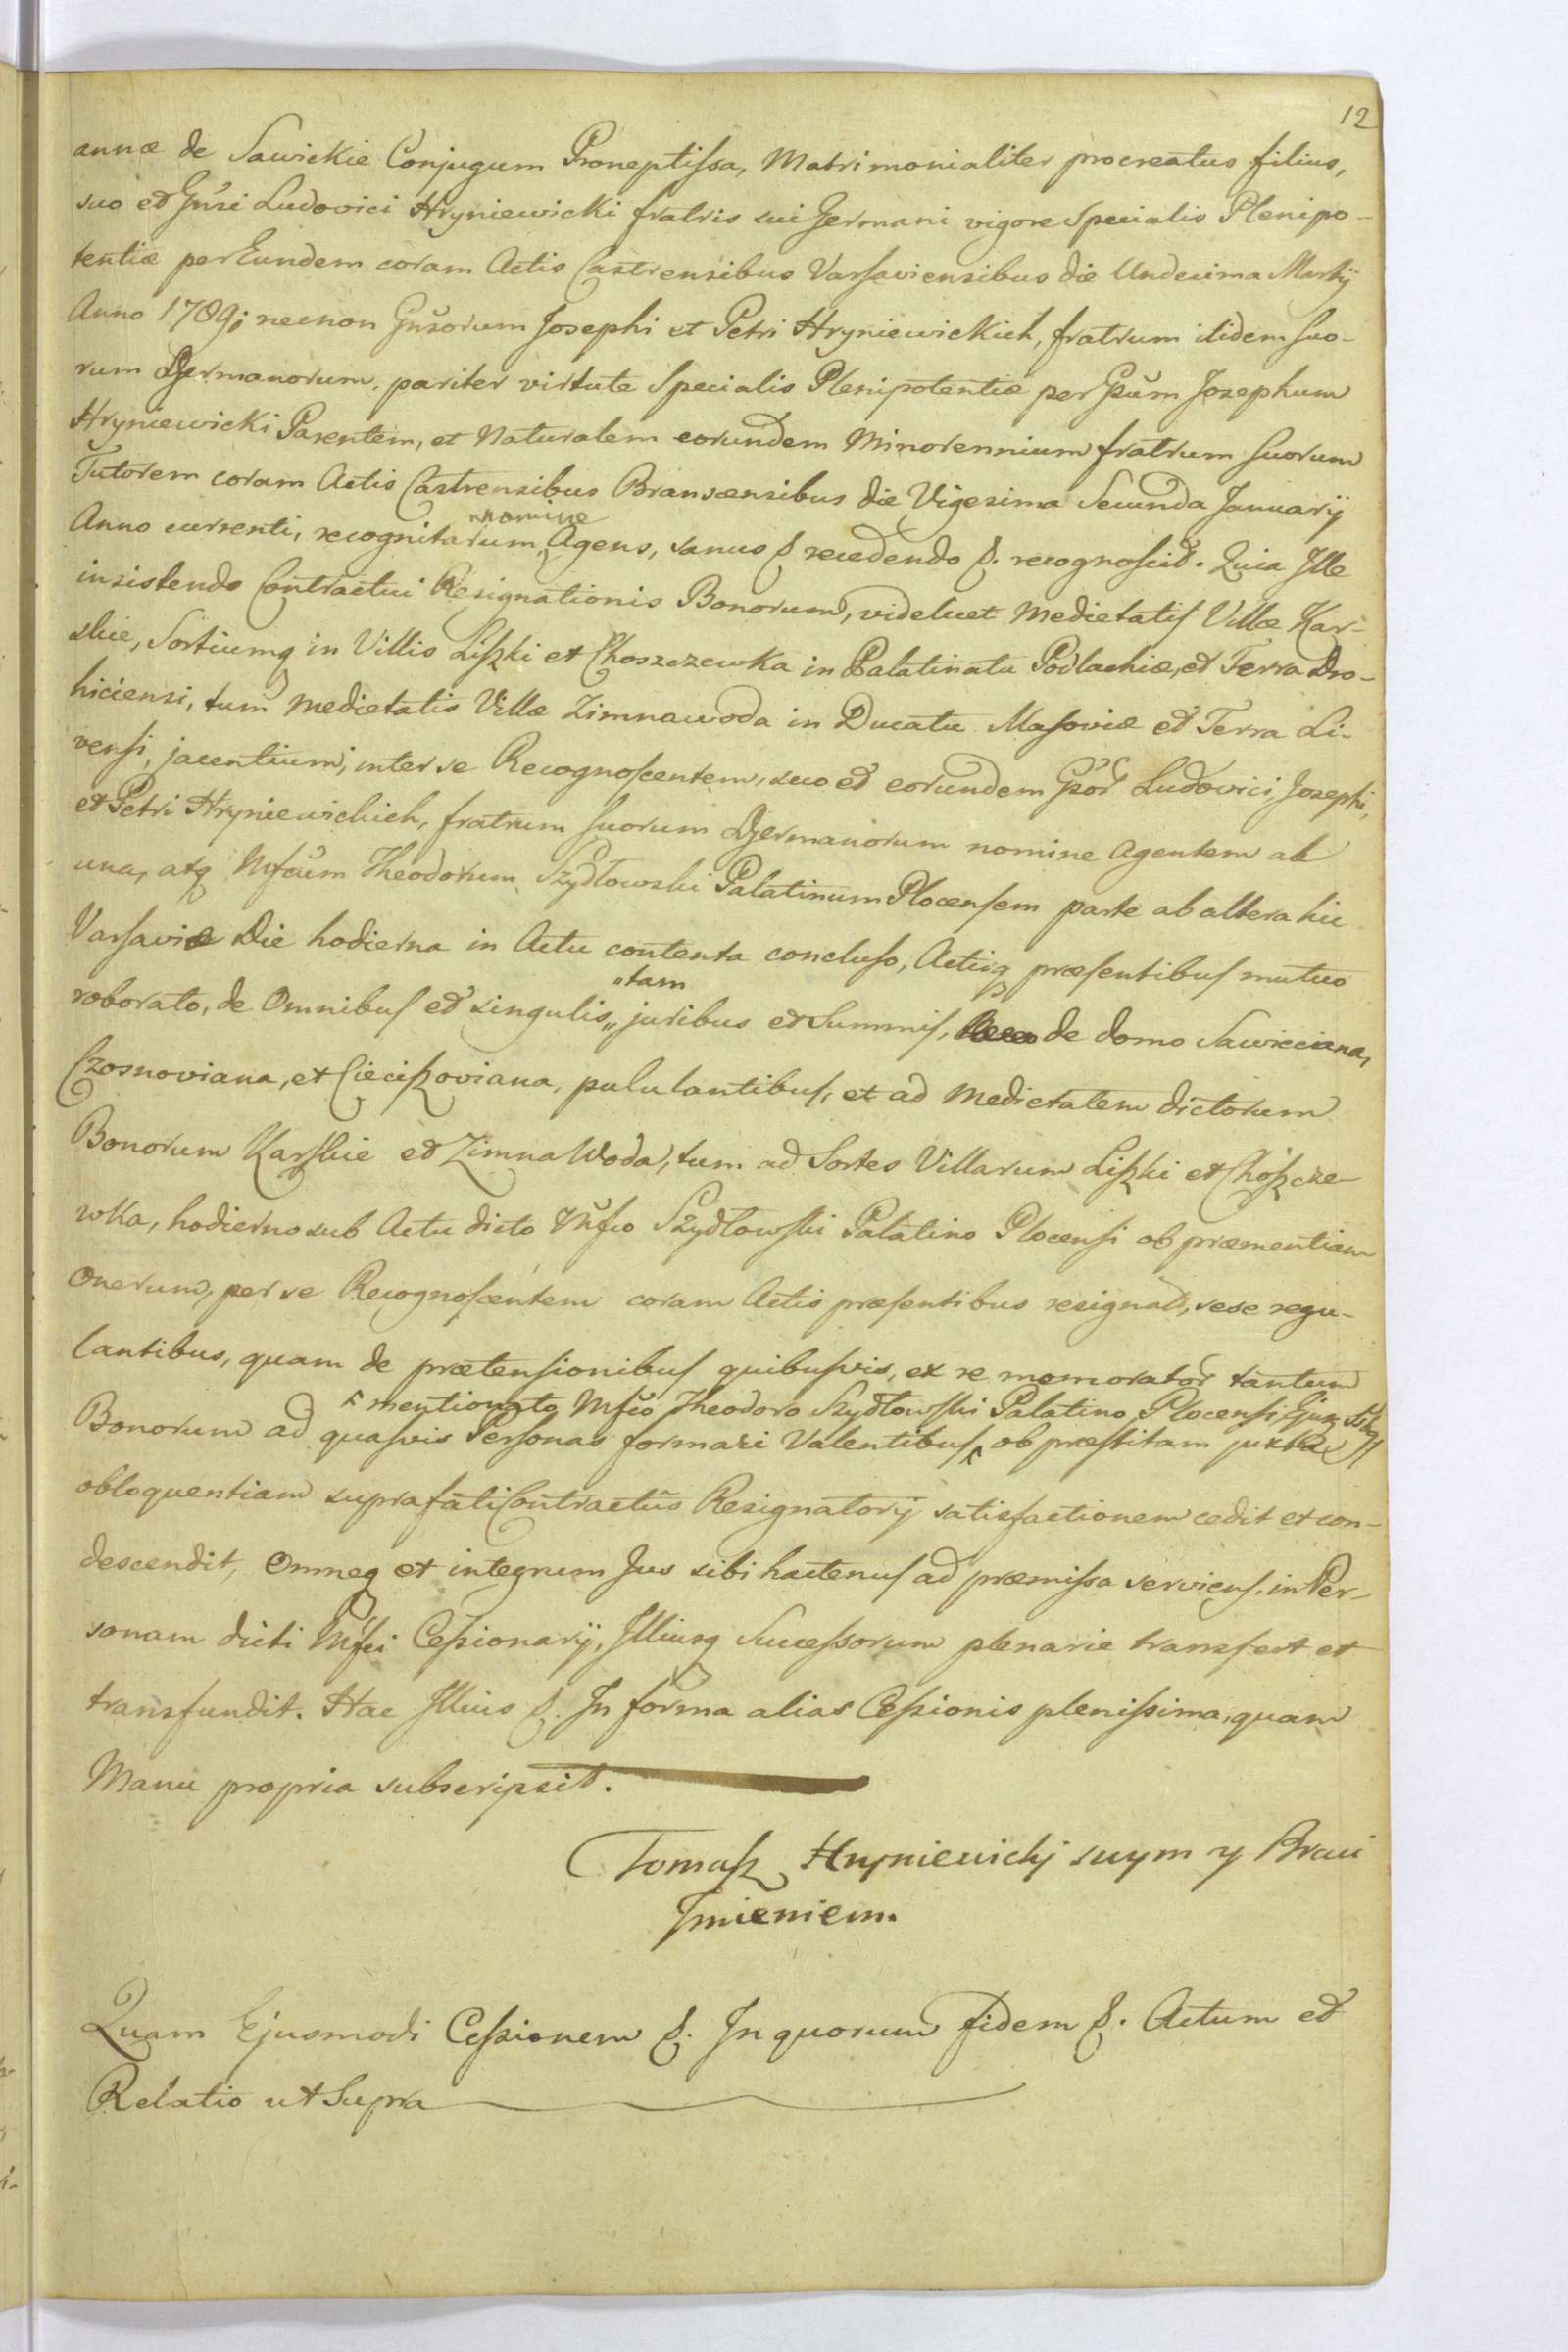 12
annæ de Sawickie Conjugum Proneptissa, Matrimonialiter procreatus filius,
suo et Gnsi Ludovici Hryniewicki fratris sui Germani vigore Specialis Plenipo-
tentiæ per Eundem coram Actis Castrensibus Varsaviensibus die Undecima Martij
Anno 1789; necnon Gnsorum Josephi et Petri Hryniewickich, fratrum itidem suo-
rum Germanorum, pariter virtute Specialis Plenipotentiæ per Gsum Josephum
Hryniewicki Parentem, et Naturalem eorundem Minorennium fratrum suorum
Tutorem coram Actis Castrensibus Branscensibus die Vigesima Secunda Januarij
nomine
Anno currenti, recognitarum, Agens, sanus &. recedendo &. recognoscit. Quia Ille
insistendo Contractui Resignationis Bonorum, videlicet Medietatis Villæ Kar-
skie, Sortiumq in Villis Liszki et Choszczewka in Palatinatu Podlachiæ, et Terra Dro-
hiciensi, tum Medietatis Villæ Zimnawoda in Ducatu Masoviæ et Terra Li-
vensi, jacentium, inter se Recognoscentem, suo et eorundem Gsor Ludovici, Josephi,
et Petri Hryniewickich, fratrum suorum Germanorum nomine Agentem ab
una, atq Mfcum Theodorum Szydłowski Palatinum Plocensem parte ab altera hic
Varsaviæ Die hodierna in Actu contenta concluso, Actisq præsentibus mutuo
"tam
roborato, de Omnibus et singulis " juribus et Summis, de domo Sawicciana,
Czosnoviana, et Cieciszoviana, pululantibus, et ad Medietatem dictorum
Bonorum Karskie et Zimna Woda, tum ad Sortes Villarum Liszki et Choszcze-
wka, hodierno sub Actu dicto Mfco Szydłowski Palatino Plocensi ob præmentiam
Onerum, per se Recognoscentem coram Actis præsentibus resignat, sese regu-
lantibus, quam de prætensionibus quibusvis, ex re memorator tantum
mentionato Mfco Theodoro Szydłowski Palatino Plocensi Ejusq
Bonorum ad quasvis Personas formari Valentibus, ob præstitam juxta
obloquentiam suprafati Contractus Resignatorij satisfactionem cedit et con-
descendit, Omneq et integrum Jus sibi hactenus ad præmissa serviens, in Per-
sonam dicti Mfci Cessionarij, Illiusq Successorum plenarie transfert et
transfundit. Hac Illius &. In forma alias Cessionis plenissima, quam
Manu propria subscripsit.
Tomasz Hryniewickj swym y Braci
Jmieniem.
Quam Ejusmodi Cessionem &. In quorum fidem &. Actum et
Relatio ut Supra